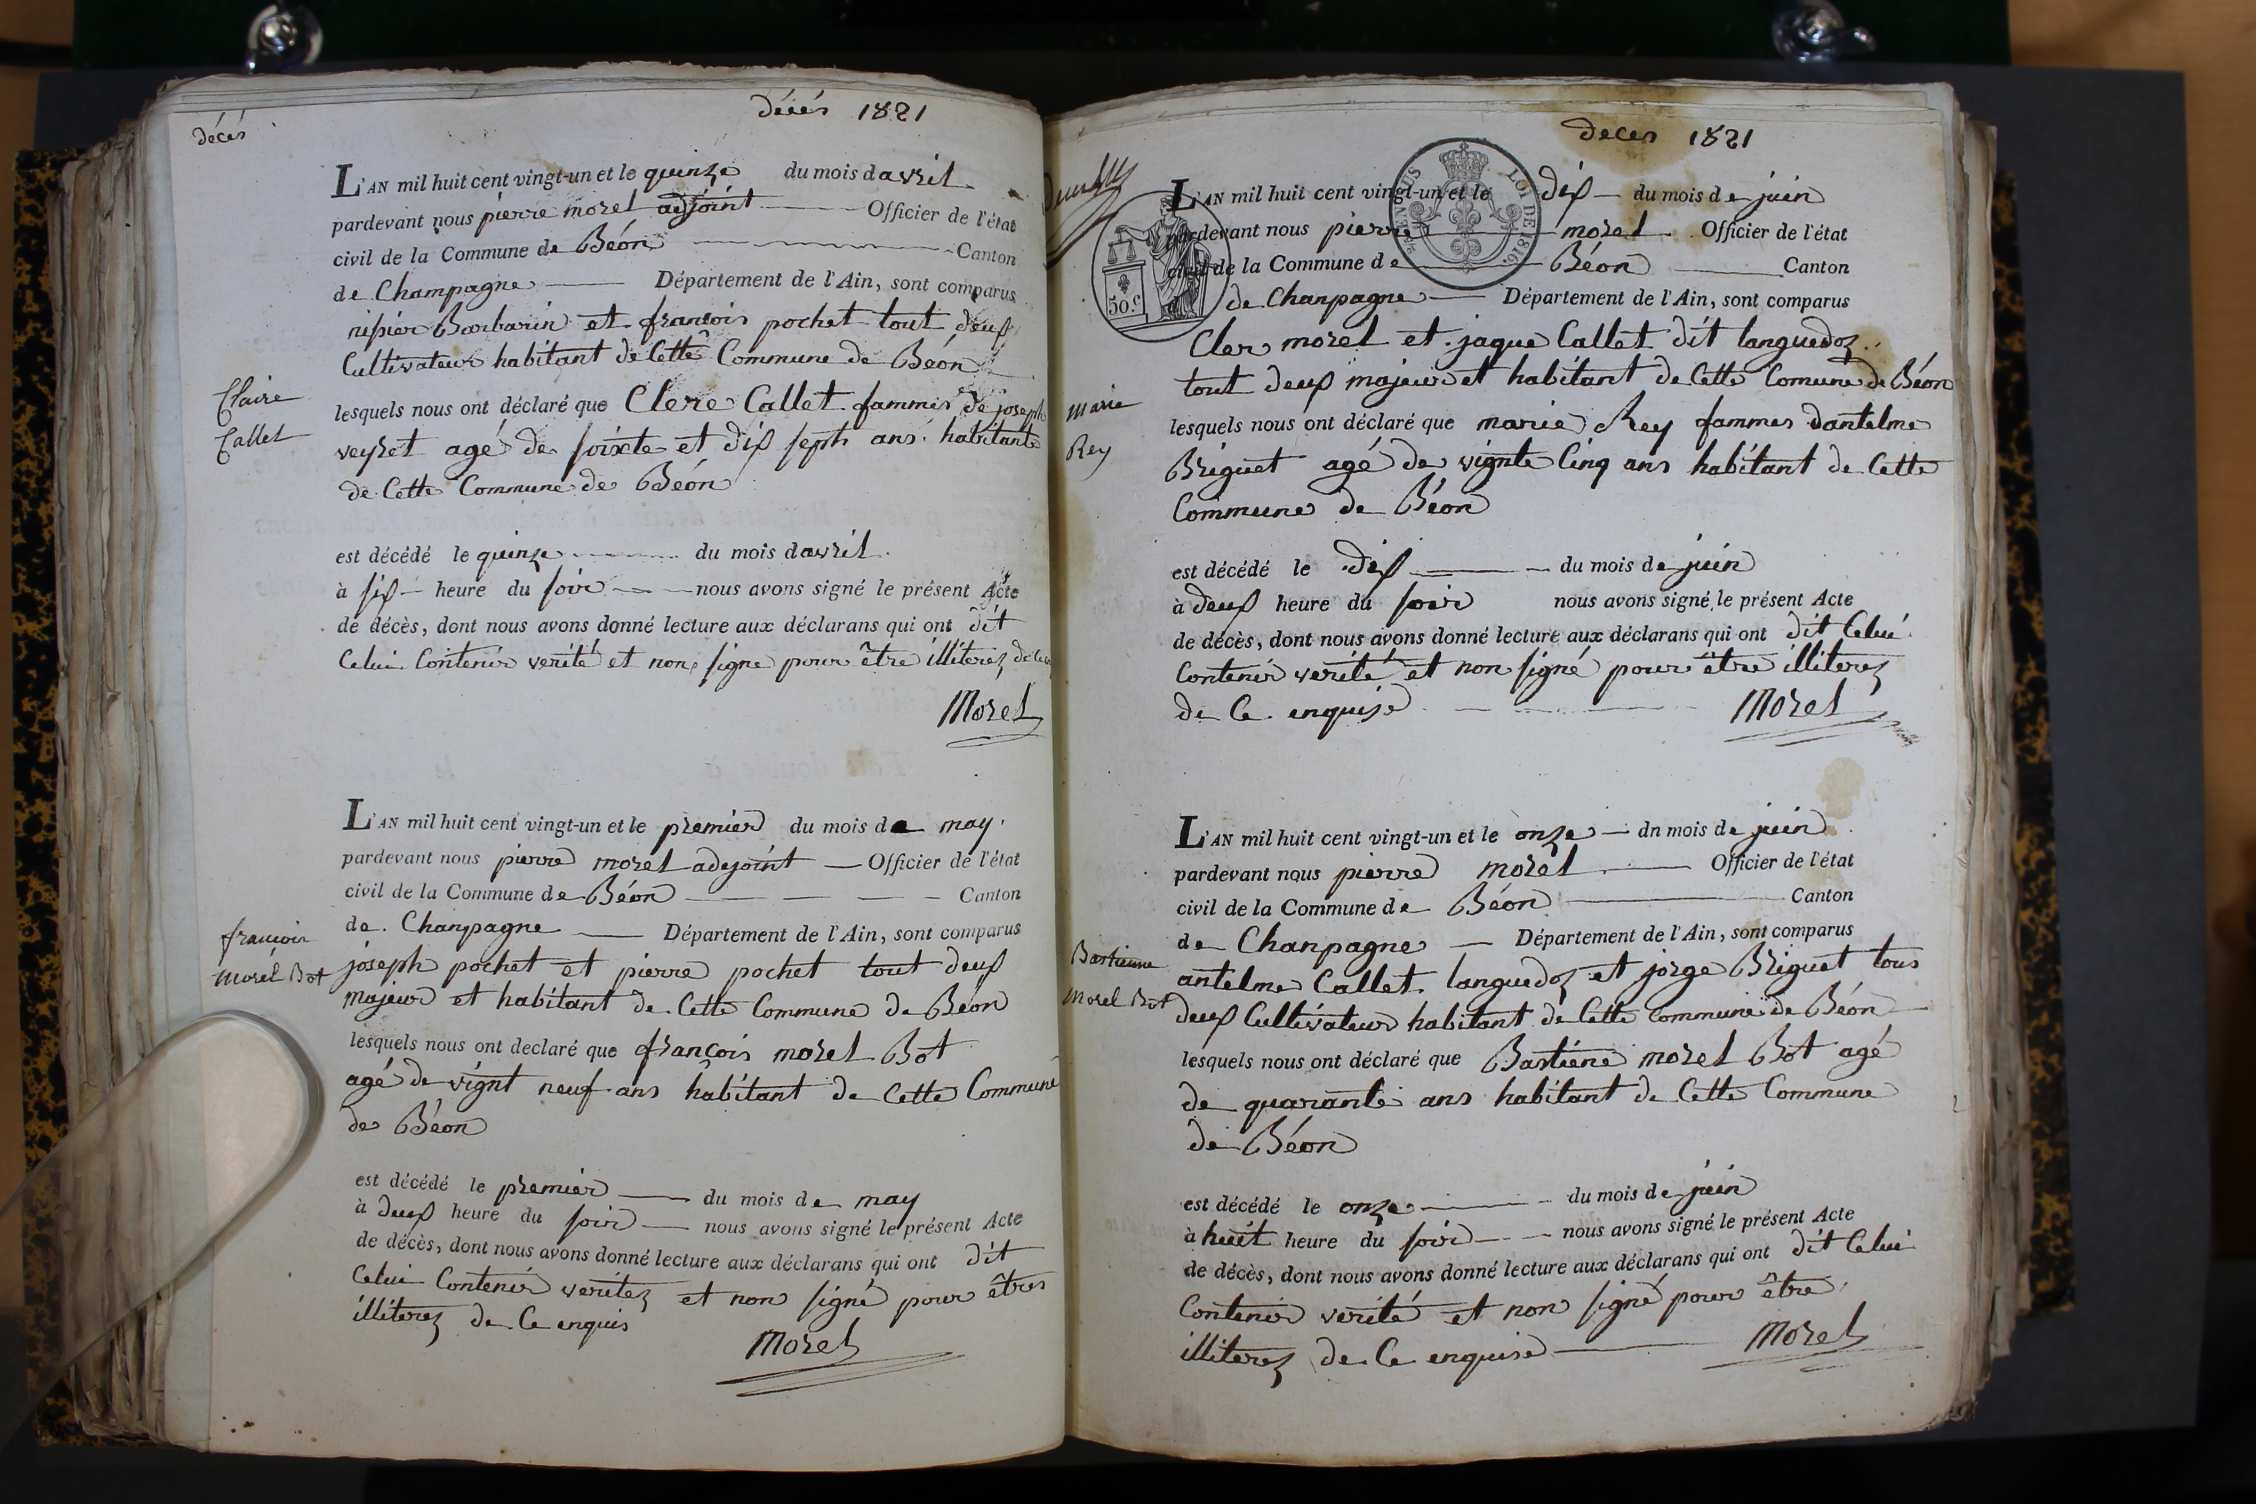 décés
décés 1821
L'AN mil huit cent vingt-un et le quinze du mois d avril
pardevant nous pierre morel adjoint Officier de l'état
civil de la Commune de Béon Canton
de Champagne Département de l'Ain, sont comparus
nisier Barbarin et francois pochet tout deux
Cultivateur habitant de Cette Commune de Béon
Claire
Callet
lesquels nous ont déclaré que Clere Callet fammes de joseph
veyret agé de soixte et dix septh ans habitante
de Cette Commune de Béon
est décédé le quinze du mois d avril
à six heure du soir nous avons signé le présent Acte
de décès, dont nous avons donné lecture aux déclarans qui ont dit
Celui Contenir verité et non signe pour être illiterez de ce
Morel
L'AN mil huit cent vingt-un et le premier du mois de may
pardevant nous pierre morel adejoint Officier de l'état
civil de la Commune de Béon Canton
de Chanpagne Département de l'Ain, sont comparus
francois
Morel Bot
joseph pochet et pierre pochet tout deux
majeur et habitant de Cette Commune de Béon
lesquels nous ont declaré que françois morel Bot
agé de vignt neuf ans habitant de Cette Commune
de Béon
est décédé le premier du mois de may
à deux heure du soir nous avons signé le présent Acte
de décès, dont nous avons donné lecture aux déclarans qui ont dit
Celui Contenir veritez et non signé pour êtres
illiterez de Ce enquis
Morel
deces 1821
LOI DE 1816.
50.c
L'AN mil huit cent vingt-un et le dix du mois de juin
pardevant nous pierre morel Officier de l'état
civil de la Commune de Béon Canton
de Chanpagne Département de l'Ain, sont comparus
Cler morel et jaque Callet dit languedoz
tout deux majeur et habitant de Cette Comune de Béon
marie
Rey
lesquels nous ont déclaré que marie Rey fammes dantelme
Briguet agé de vignte Cinq ans habitant de Cette
Commune de Béon
est décédé le dix du mois de juin
à deux heure du soir nous avons signé le présent Acte
de décès, dont nous avons donné lecture aux déclarans qui ont dit Celui
Contenir verité et non signé pour être illiterez
de Ce enquise
Morel
L'AN mil huit cent vingt-un et le onze dn mois de juin
pardevant nous pierre morel Officier de l'état
civil de la Commune de Béon Canton
de Chanpagne Département de l'Ain, sont comparus
Bastienne
Morel Bot
antelme Callet languedoz et jorge Briguet tous
deux Cultivateur habitant de Cette Commune de Béon
lesquels nous ont déclaré que Bastiene morel Bot agé
de quarante ans habitant de Cette Commune
de Béon
est décédé le onze du mois de juin
à huit heure du soir nous avons signé le présent Acte
de décès, dont nous avons donné lecture aux déclarans qui ont dit Celui
Contenir verité et non signé pour être
illiterez de Ce enquise
Morel